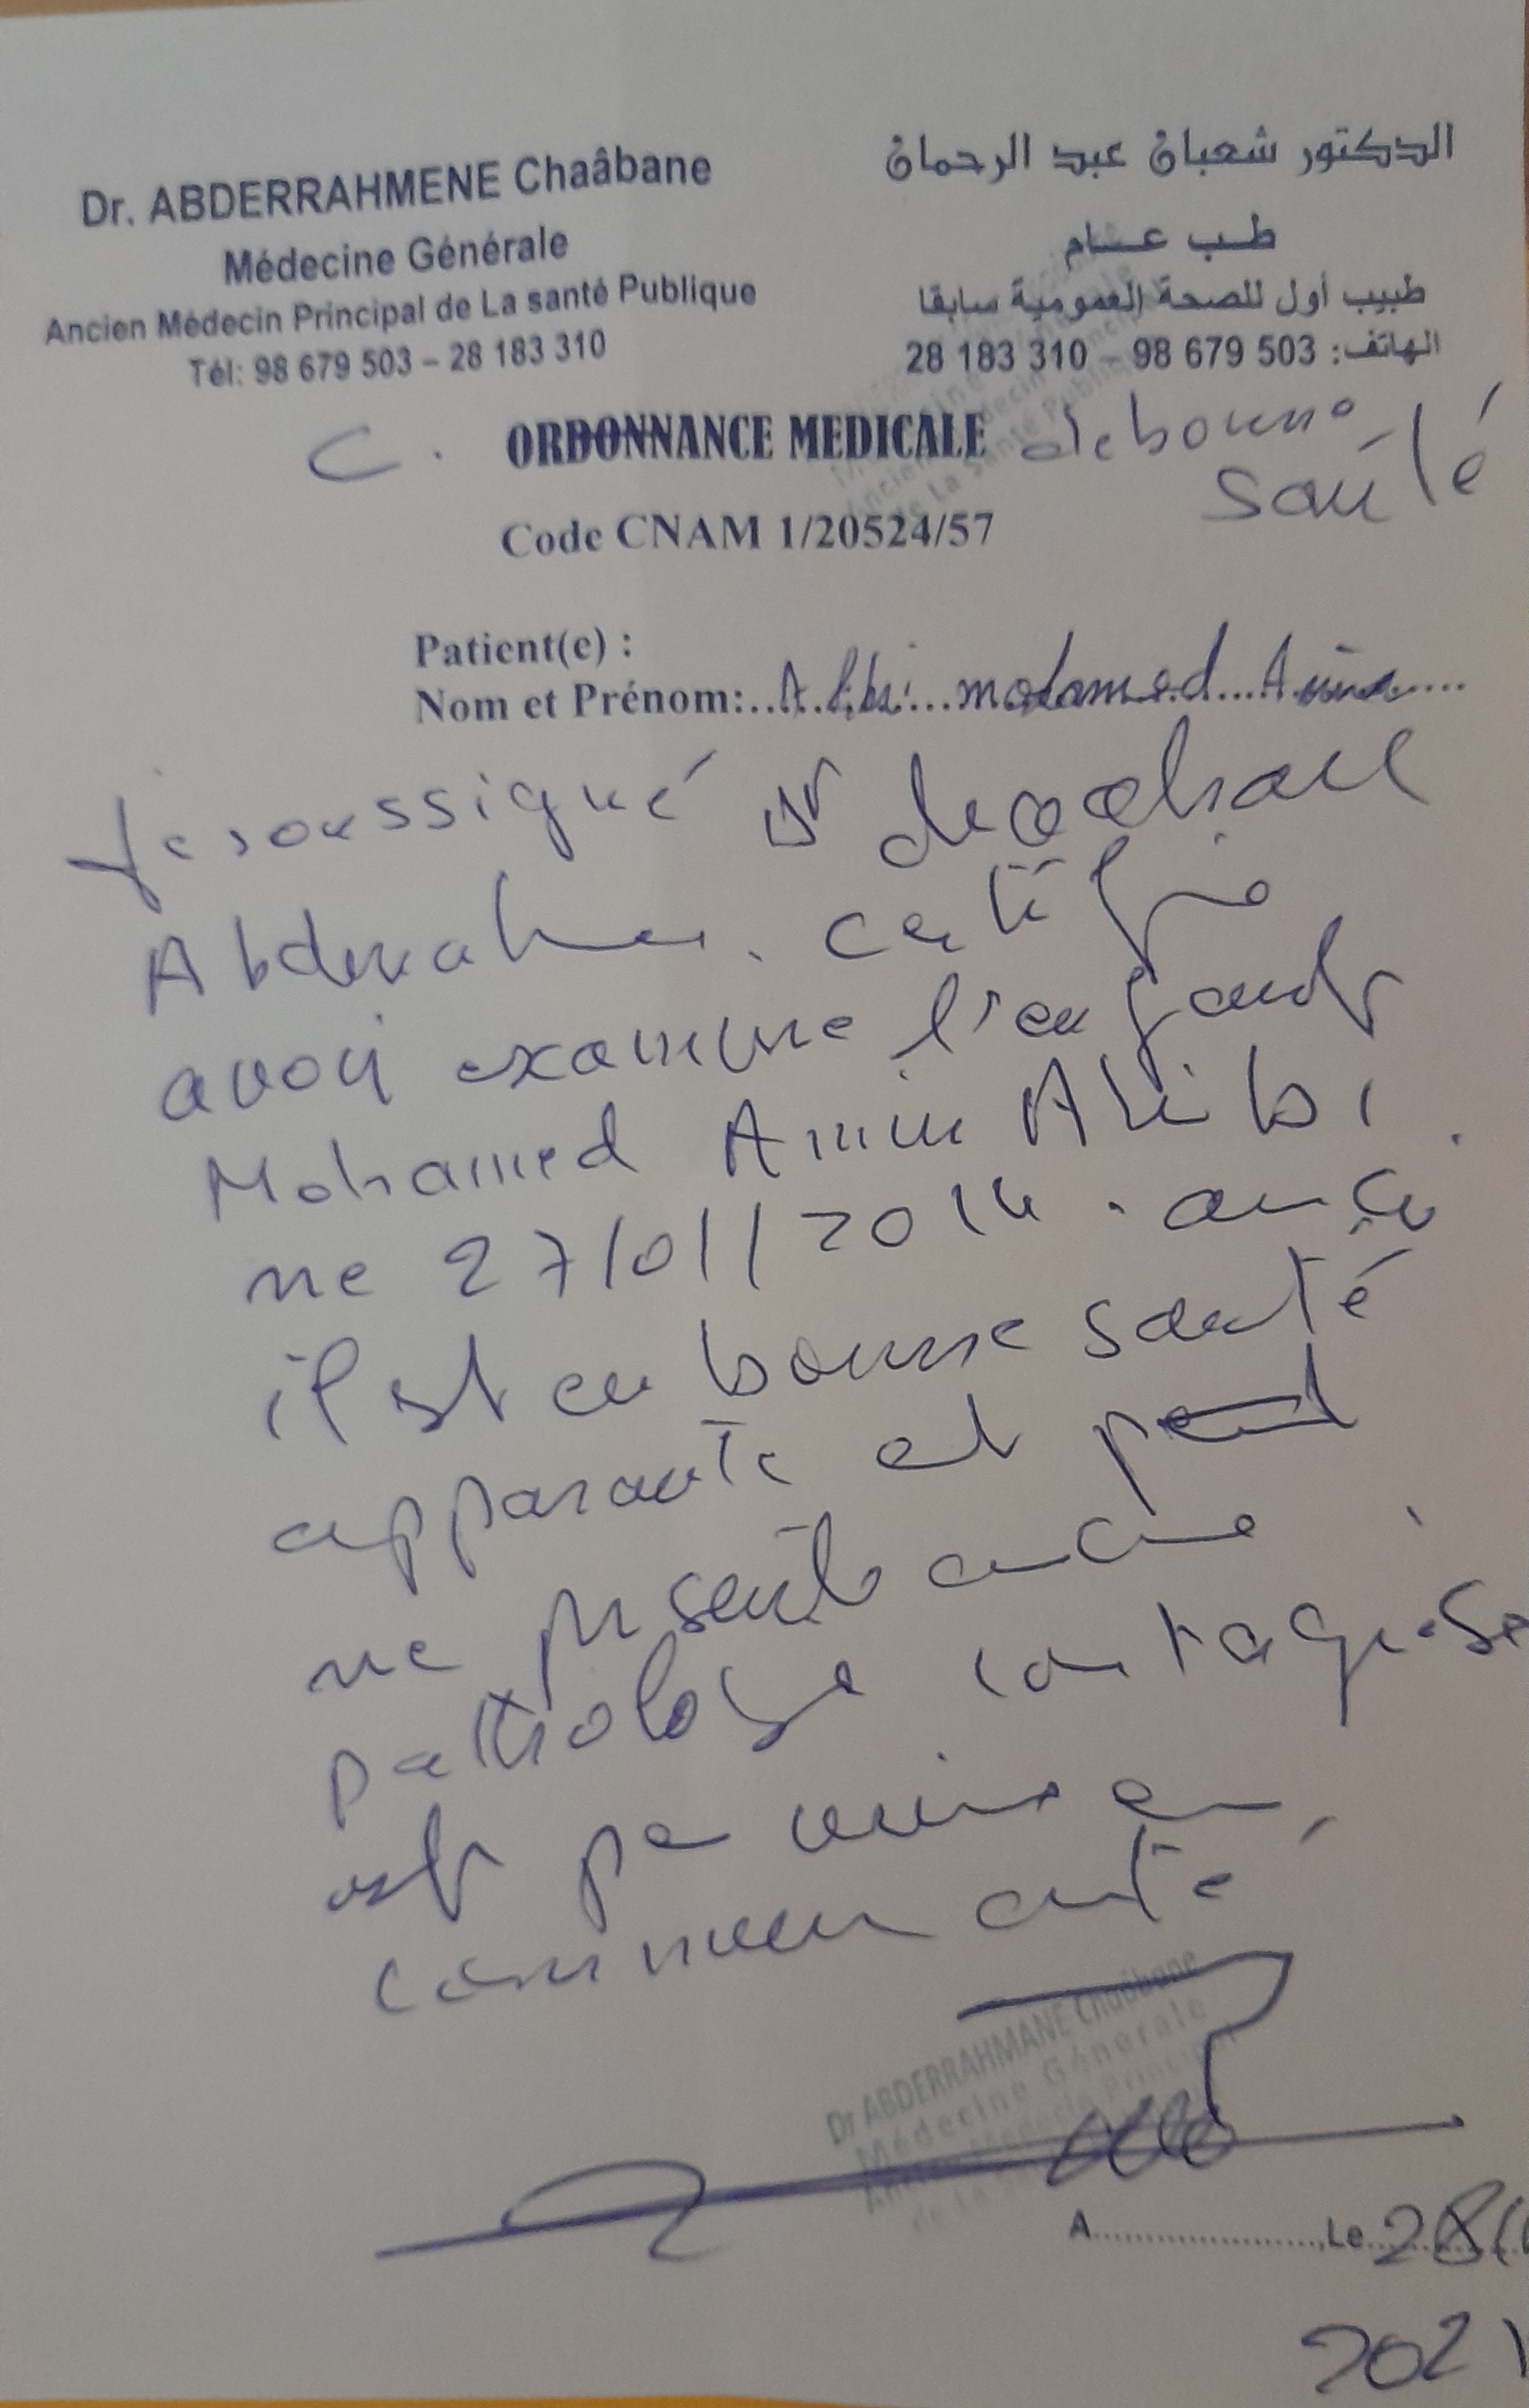 Dr. ABDERRAHMENE Chaâbane
Médecine Générale
Ancien Médecin Principal de La santé Publique
Tél: 98 679 503 – 28 183 310
الدكتور شعبان عبد الرحمان
طب عام
طبيب أول للصحة العمومية سابقا
الهاتف: 503 679 98 – 310 183 28
C. ORDONNANCE MEDICALE de bonne
santé
Code CNAM 1/20524/57
Patient(e) :
Nom et Prénom: Alibi mohamed Amine
Je soussigné Dr
certifie
avoir examine l'enfant
Mohamed Amine Alibi
ne 27/01/2014.
il est en bonne santé
apparente et
ne présente aucune
pathologie contagieuse
Dr ABDERRAHMANE Chaâbane
Médecine Générale
Ancien Médecin Principal
de La
A.....................,Le